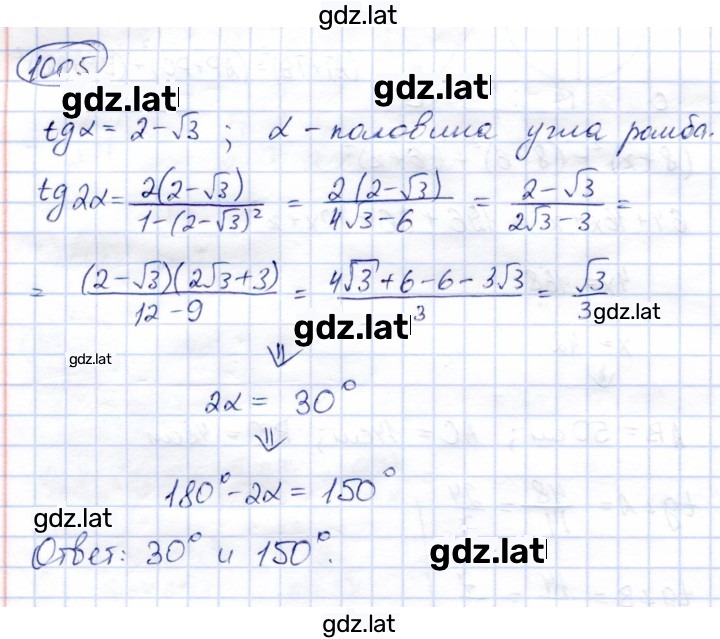 gdz.lat
1005
gdz.lat
gdz.lat
tgα = 2-√3 ; α - половина угла ромба.
tg2α = 2(2-√3)/1-(2-√3)² = 2(2-√3)/4√3-6 = 2-√3/2√3-3 =
= (2-√3)(2√3+3)/12-9 = 4√3+6-6-3√3/3 = √3/3
gdz.lat
gdz.lat
gdz.lat
⇓
2α = 30°
⇓
180°-2α = 150°
gdz.lat
Ответ: 30° и 150°.
gdz.lat
gdz.lat